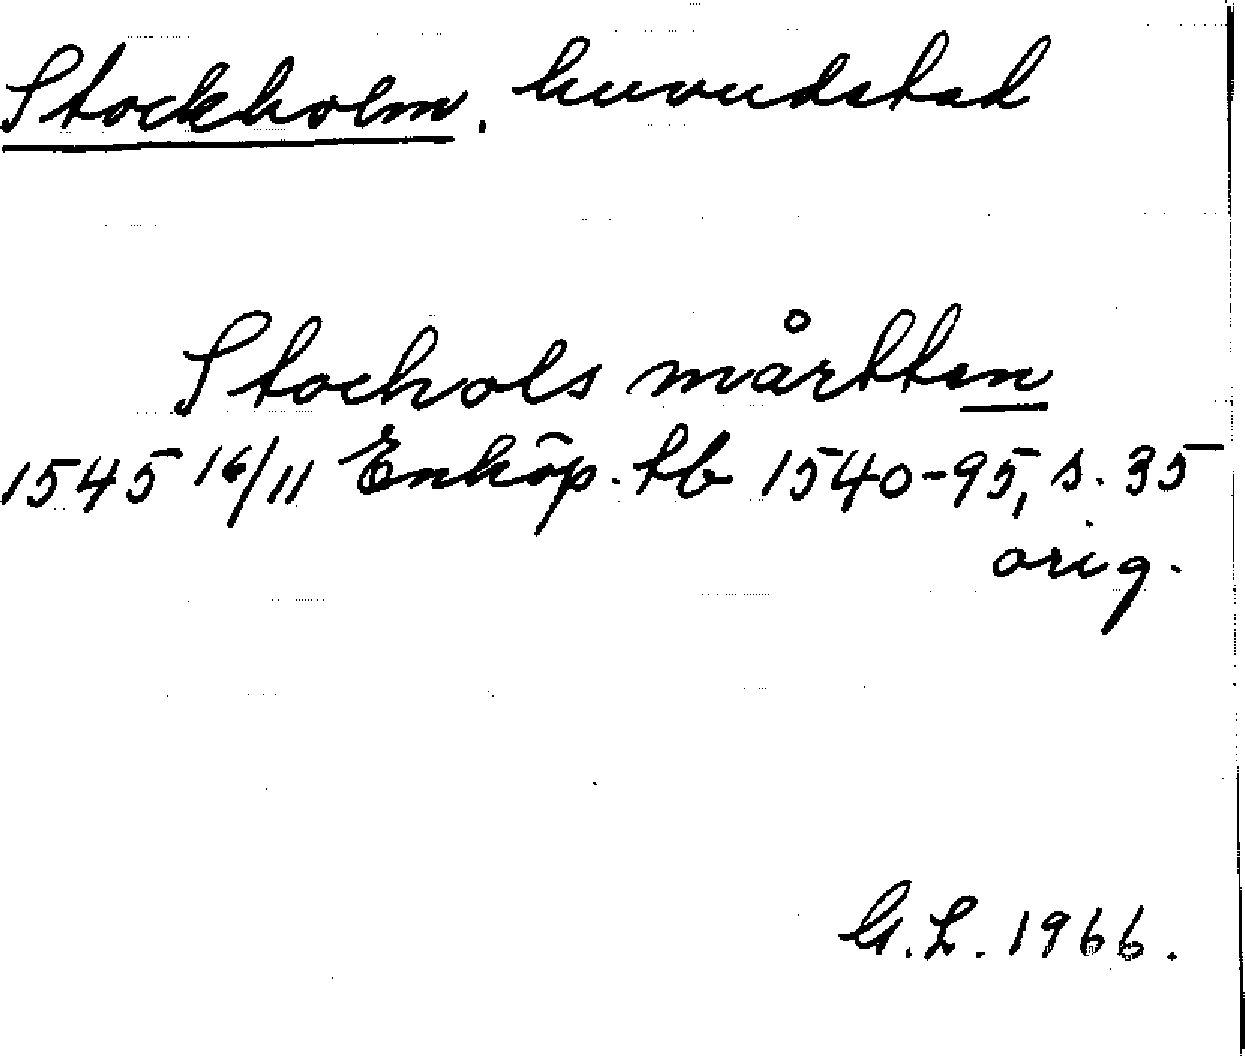 Stockholm. huvudstad
Stochols mårtten
1545 16/11 Enköp. tb 1540-95, s. 35
orig.
G.L. 1966.